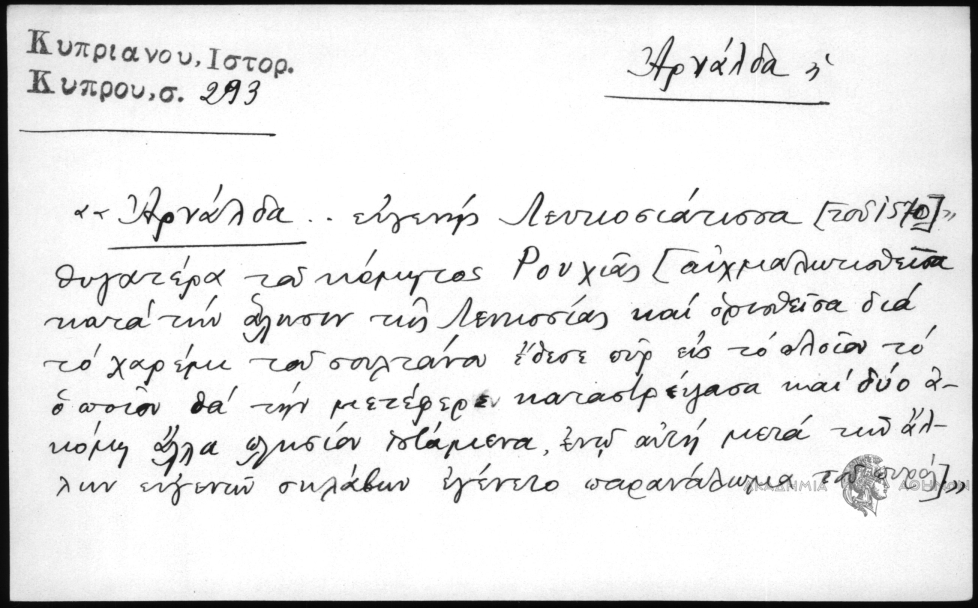 Κυπριανου, Ιστορ.
Κυπρου, σ. 293
Ἀρνάλδα ἡ
«Ἀρνάλδα .. εὐγενής Λευκοσιάτισσα [τοῦ 1570]»
θυγατέρα τοῦ κόμητος Ρουχιᾶς [αἰχμαλωτισθεῖσα
κατά τήν ἅλωσιν τῆς Λευκωσίας καί ὁρισθεῖσα διά
τό χαρέμι τοῦ σουλτάνου ἔθεσε πῦρ εἰς τό πλοῖον τό
ὁποῖον θά τήν μετέφερεν καταστρέψασα καί δύο ἀ-
κόμη ἄλλα πλησίον ἱστάμενα, ἐνῷ αὐτή μετά τῶν ἄλ-
λων εὐγενῶν σκλάβων ἐγένετο παρανάλωμα τοῦ πυρός]»
ΑΚΑΔΗΜΙΑ ΑΘΗΝΩΝ